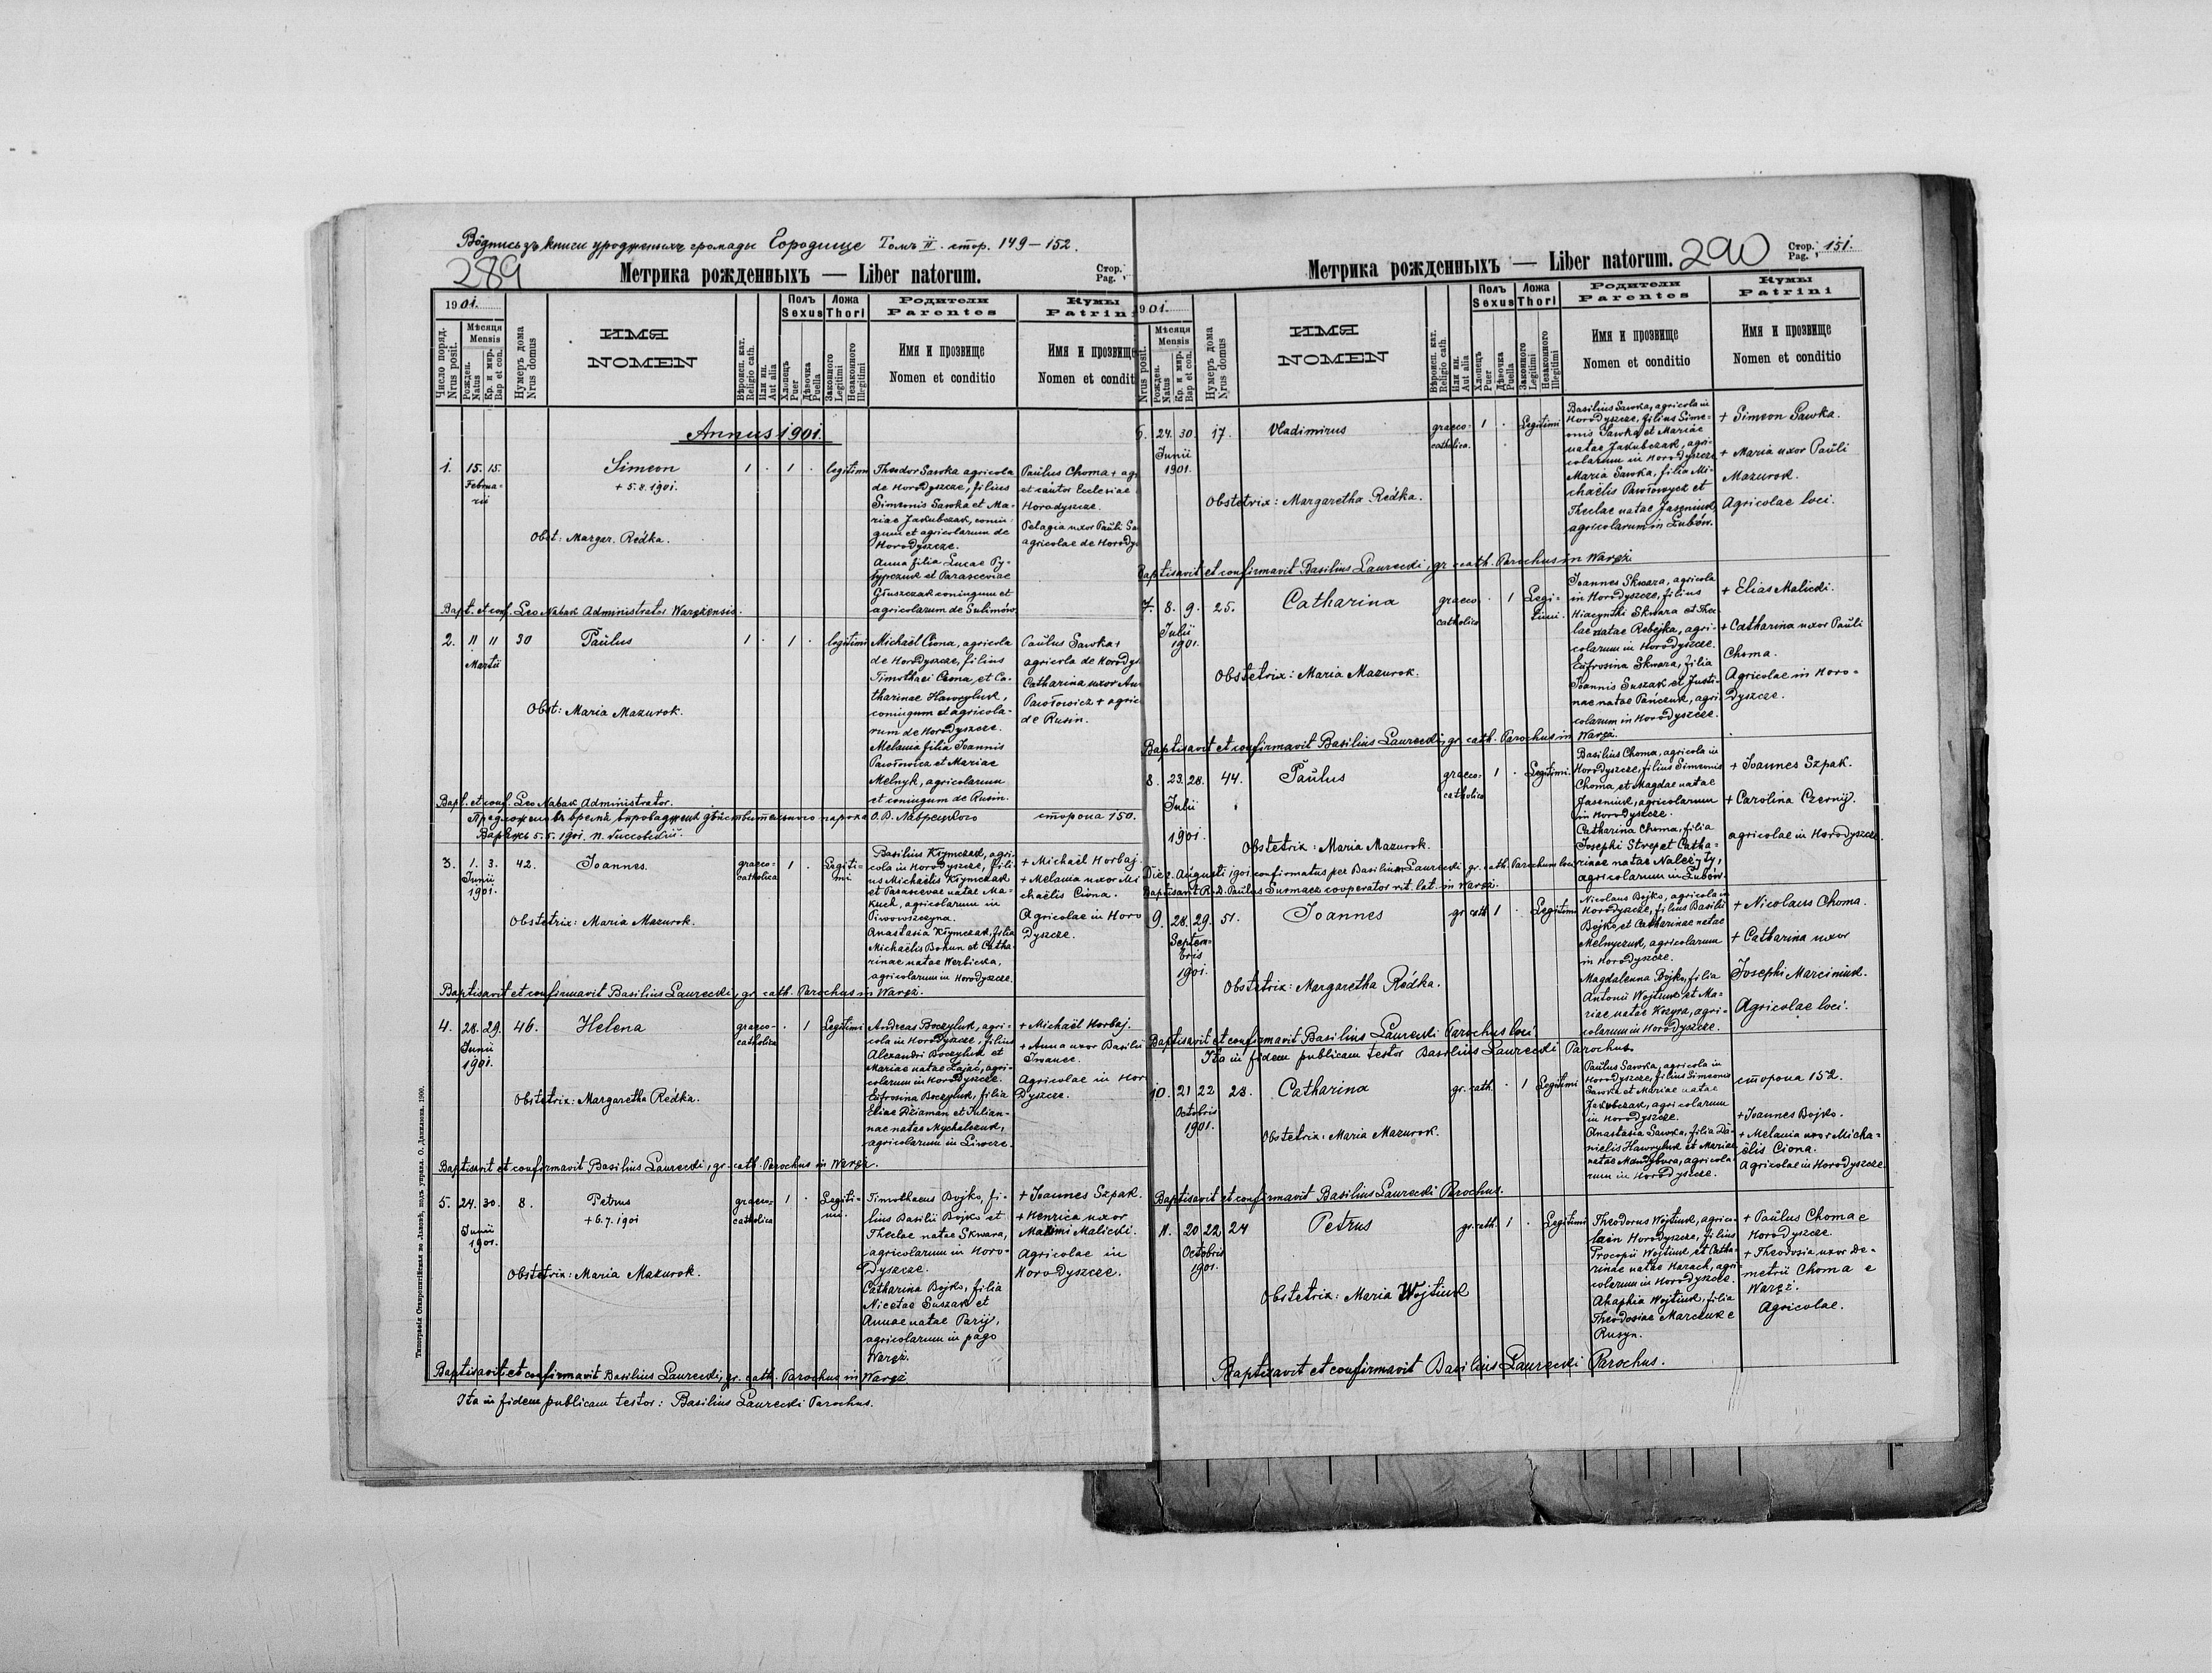 Вôдпись зъ книги уродженныхъ громады Городище Томъ II. стор. 149–152.
289
Метрика рожденныхъ — Liber natorum.
Стор.
Pag.
1901.
Число поряд.
Nrus posit.
Мѣсяця
Mensis
Рожден.
Natus
Кр. и мир.
Bap et con.
Нумеръ дома
Nrus domus
ИМЯ
NOMEN
Вѣроисп. кат.
Religio cath.
Или ин.
Aut alia
Полъ
Sexus
Хлопецъ
Puer
Дѣвочка
Puella
Ложа
Thori
Законного
Legitimi
Незаконного
Illegitimi
Родители
Parentes
Имя и прозвище
Nomen et conditio
Кумы
Patrini
Имя и прозвище
Nomen et condit
Annus 1901.
1. 15. 15. Simeon 1 . 1 . legitimi
Februa-
rii
+ 5.8.1901.
Obst: Marger. Rédka.
Theodor Sawka agricola
de Horodyszcze, filius
Simeonis Sawka et Ma-
riae Jakubczak, coniu-
gum et agricolarum de
Horodyszcze.
Anna filia Lucae Py-
łypczuk et Parasceviae
Głuszczak coniugum et
agricolarum de Sulimów.
Paulus Choma + ag
et cantor Ecclesiae
Horodyszcze.
Pelagia uxor Pauli Sa
agricolae de Horody
Bapt. et conf. Leo Nabak Administrator Warężensis.
2. 11 11 30 Paulus 1 . 1 . legitimi
Martii
Obst: Maria Mazurok.
Michaël Ciona, agricola
de Horodyszcze, filius
Timothaei Ciona et Ca-
tharinae Hawryluk,
coniugum et agricola-
rum de Horodyszcze.
Melania filia Joannis
Pawłowicz et Mariae
Melnyk, agricolarum
et coniugum de Rusin.
Paulus Sawka +
agricola de Horodys
Catharina uxor An
Pawłowicz + agric
de Rusin.
Bapt. et conf. Leo Nabak Administrator.
О. В. Лаврецкого сторона 150.
3. 1. 3. 42. Joannes. graeco-catholica 1 . Legitimi
Junii
1901.
Obstetrix: Maria Mazurok.
Basilius Kłymczak, agri-
cola in Horodyszcze, fili-
us Michaëlis Kłymczak
et Parascevae natae Ma-
kuch, agricolarum in
Piwowszczyna.
Anastasia Kłymczak, filia
Michaëlis Bohun et Catha-
rinae natae Werbicka,
agricolarum in Horodyszcze.
+ Michaël Horbaj.
+ Melania uxor Mi
chaëlis Ciona.
Agricolae in Horo
dyszcze.
Baptisavit et confirmavit Basilius Laurecki, gr. cath. Parochus in Waręż.
4. 28. 29. 46. Helena graeco-catholica . 1 Legitimi
Junii
1901.
Obstetrix: Margaretha Rédka.
Andreas Boczyluk, agri-
cola in Horodyszcze, filius
Alexandri Boczyluk et
Mariae natae Zająć, agri-
colarum in Horodyszcze.
Eufrosina Boczyluk, filia
Eliae Dziaman et Julian-
nae natae Mychalczuk,
agricolarum in Liwcze.
+ Michaël Horbaj.
+ Anna uxor Basilii
Agricolae in Hor
dyszcze.
Baptisavit et confirmavit Basilius Laurecki, gr. cath. Parochus in Waręż.
5. 24. 30. 8. Petrus graeco-catholica 1 . Legitimi.
Junii
1901.
+ 6.7.1901
Obstetrix: Maria Mazurok.
Timothaeus Bojko, fi-
lius Basilii Bojko et
Theclae natae Skwara,
agricolarum in Horo-
dyszcze.
Catharina Bojko, filia
Nicetae Suszak et
Annae natae Paryj,
agricolarum in pago
Waręż.
+ Joannes Szpak.
+ Henrica uxor
Maximi Malicki.
Agricolae in
Horodyszcze.
Baptisavit et confirmavit Basilius Laurecki, gr. cath. Parochus in Waręż
Ita in fidem publicam testor: Basilius Laurecki Parochus.
Типографія Ставропигійская во Львовѣ, подъ управл. О. Данилюка. 1900.
Метрика рожденныхъ — Liber natorum.
290
Стор.
Pag.
151.
1901.
Nrus posit.
Мѣсяця
Mensis
Рожден.
Natus
Кр. и мир.
Bap et con.
Нумеръ дома
Nrus domus
ИМЯ
NOMEN
Вѣроисп. кат.
Religio cath.
Или ин.
Aut alia
Полъ
Sexus
Хлопецъ
Puer
Дѣвочка
Puella
Ложа
Thori
Законного
Legitimi
Незаконного
Illegitimi
Родители
Parentes
Имя и прозвище
Nomen et conditio
Кумы
Patrini
Имя и прозвище
Nomen et conditio
6. 24. 30. 17. Vladimirus graeco-catholica. 1 . Legitimi
Junii
1901.
Obstetrix: Margaretha Rédka.
Basilius Sawka, agricola in
Horodyszcze, filius Sime-
onis Sawka et Mariae
natae Jakubczak, agri-
colarum in Horodyszcze.
Maria Sawka, filia Mi-
chaëlis Pawłowycz et
Theclae natae Jaseniuk,
agricolarum in Łubów.
+ Simeon Sawka.
+ Maria uxor Pauli
Mazurok.
Agricolae loci.
Baptisavit et confirmavit Basilius Laurecki, gr. cath. Parochus in Waręż.
7. 8. 9. 25. Catharina graeco-catholica . 1 Legitimi.
Julii
1901.
Obstetrix: Maria Mazurok.
Joannes Skwara, agricola
in Horodyszcze, filius
Hiacynthi Skwara et The-
lae natae Rebejka, agri-
colarum in Horodyszcze.
Eufrosina Skwara, filia
Joannis Suszak et Justi-
nae natae Pańczuk, agri-
colarum in Horodyszcze.
+ Elias Malicki.
+ Catharina uxor Pauli
Choma.
Agricolae in Horo-
dyszcze.
Baptisavit et confirmavit Basilius Laurecki, gr. cath. Parochus in Waręż.
8. 23. 28. 44. Paulus graeco-catholica 1 . Legitimi.
Julii
1901.
Obstetrix: Maria Mazurok.
Basilius Choma, agricola in
Horodyszcze, filius Simeonis
Choma et Magdae natae
Jaseniuk, agricolarum
in Horodyszcze.
Catharina Choma, filia
Josephi Strep et Catha-
rinae natae Należyty,
agricolarum in Łubów.
+ Joannes Szpak.
+ Carolina Czernij.
agricolae in Horodyszcze.
Die 2. Augusti 1901 confirmatus per Basilium Laurecki gr. cath. Parochum loci
Baptisavit R. D. Paulus Surmacz cooperator rit. lat. in Waręż.
9. 28. 29. 51. Joannes gr. cath 1 . Legitimi
Septem-
bris
1901.
Obstetrix: Margaretha Rédka.
Nicolaus Bojko, agricola in
Horodyszcze, filius Basilii
Bojko et Catharinae natae
Melnyczuk, agricolarum
in Horodyszcze.
Magdalenna Bojko, filia
Antonii Wojtiuk et Ma-
riae natae Kozyra, agri-
colarum in Horodyszcze.
+ Nicolaus Choma.
+ Catharina uxor
Josephi Marciniuk.
Agricolae loci.
Baptisavit et confirmavit Basilius Laurecki Parochus loci
Ita in fidem publicam testor Basilius Laurecki Parochus.
10. 21 22 23. Catharina gr. cath. . 1 Legitimi
Octobris
1901.
Obstetrix: Maria Mazurok.
Paulus Sawka, agricola in
Horodyszcze, filius Simeonis
Sawka et Mariae natae
Jakubczak, agricolarum
in Horodyszcze.
Anastasia Sawka, filia Da-
nielis Hawryluk et Mariae
natae Mandybura, agricola-
rum in Horodyszcze.
сторона 152.
+ Joannes Bojko.
+ Melania uxor Micha-
ëlis Ciona.
Agricolae in Horodyszcze
Baptisavit et confirmavit Basilius Laurecki Parochus.
11. 20 22 24 Petrus gr. cath. 1 . Legitimi
Octobris
1901.
Obstetrix: Maria Wojtiuk
Theodorus Wojtiuk, agrico-
la in Horodyszcze, filius
Procopii Wojtiuk et Catha-
rinae natae Harach, agri-
colarum in Horodyszcze.
Ahaphia Wojtiuk, filia
Theodosiae Marczuk e
Rusyn.
+ Paulus Choma e
Horodyszcze.
+ Theodosia uxor De-
metrii Choma e
Waręż.
Agricolae.
Baptizavit et confirmavit Basilius Laurecki Parochus.